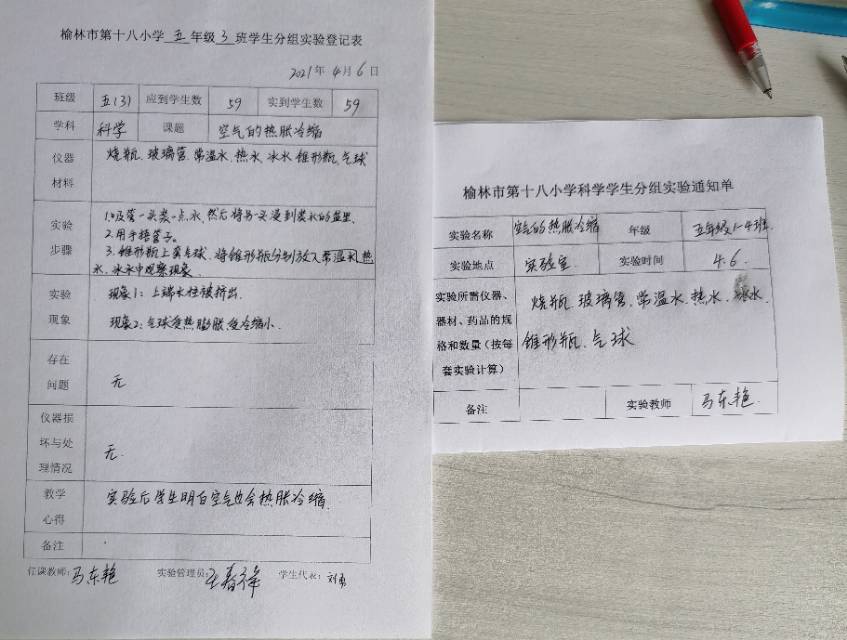 榆林市第十八小学 五 年级 3 班学生分组实验登记表
2021年 4月 6日
班级 五(3) 应到学生数 59 实到学生数 59
学科 科学 课题 空气的热胀冷缩
仪器材料 烧瓶.玻璃管.常温水.热水.冰水.锥形瓶.气球
实验步骤
然后将另一头浸到装水的盆里.
2.用手捂管子。
3.锥形瓶上套气球.将锥形瓶分别放入常温水,热
水,冰水中观察现象.
实验现象 现象1:上端水柱被挤出.
现象2:气球受热膨胀.受冷缩小.
存在问题 无
仪器损坏与处理情况 无.
教学心得 实验后学生明白空气也会热胀冷缩.
备注
任课教师:马东艳 实验管理员:王春锋 学生代表:
榆林市第十八小学科学学生分组实验通知单
实验名称 空气的热胀冷缩 年级 五年级1-4班.
实验地点 实验室. 实验时间 4.6.
实验所需仪器、器材、药品的规格和数量(按每套实验计算) 烧瓶.玻璃管.常温水.热水.冰水.
锥形瓶.气球
备注 实验教师 马东艳.